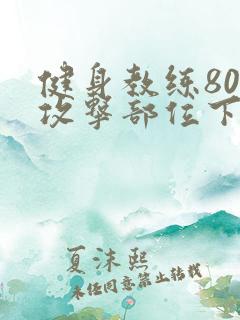 健身教练80
攻撃部位下
夏沫熙
未经同意禁止转载